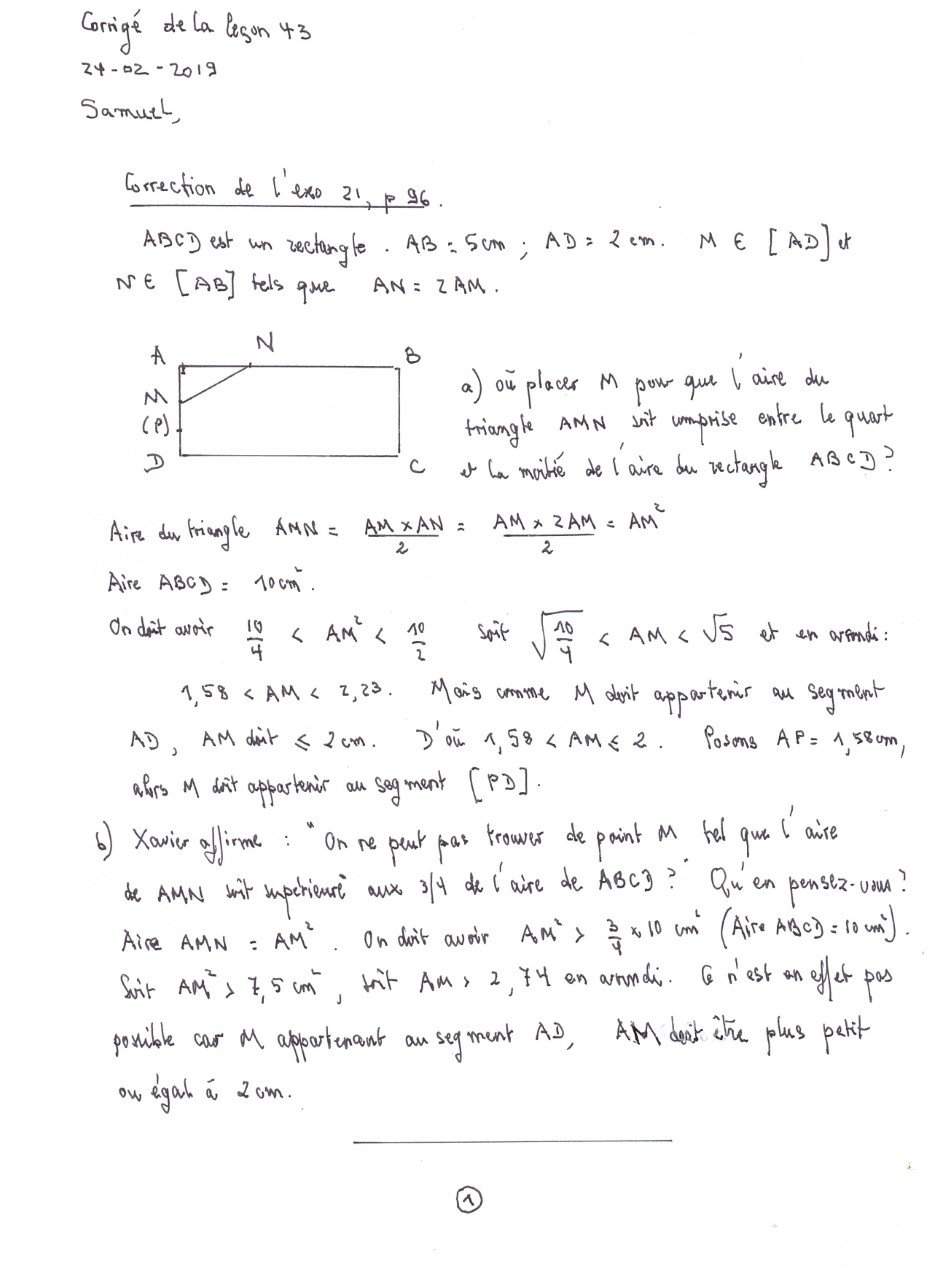 Corrigé de la leçon 43
24-02-2019
Samuel,
Correction de l'exo 21, p 96.
ABCD est un rectangle. AB = 5cm ; AD = 2 cm. M ∈ [AD] et
N ∈ [AB] tels que AN = 2AM.
A N B
M
(P)
D C
a) où placer M pour que l'aire du
triangle AMN soit comprise entre le quart
et la moitié de l'aire du rectangle ABCD ?
Aire du triangle AMN = AM × AN / 2 = AM × 2AM / 2 = AM²
Aire ABCD = 10cm².
On doit avoir 10/4 < AM² < 10/2 soit √(10/4) < AM < √5 et en arrondi :
1,58 < AM < 2,23. Mais comme M doit appartenir au segment
AD, AM doit ⩽ 2cm. D'où 1,58 < AM ⩽ 2. Posons AP = 1,58cm,
alors M doit appartenir au segment [PD].
b) Xavier affirme : "On ne peut pas trouver de point M tel que l'aire
de AMN soit supérieure aux 3/4 de l'aire de ABCD ?" Qu'en pensez-vous ?
Aire AMN = AM². On doit avoir AM² > 3/4 × 10 cm² (Aire ABCD = 10cm²).
Soit AM² > 7,5 cm², soit AM > 2,74 en arrondi. Ce n'est en effet pas
possible car M appartenant au segment AD, AM doit être plus petit
ou égal à 2cm.
1